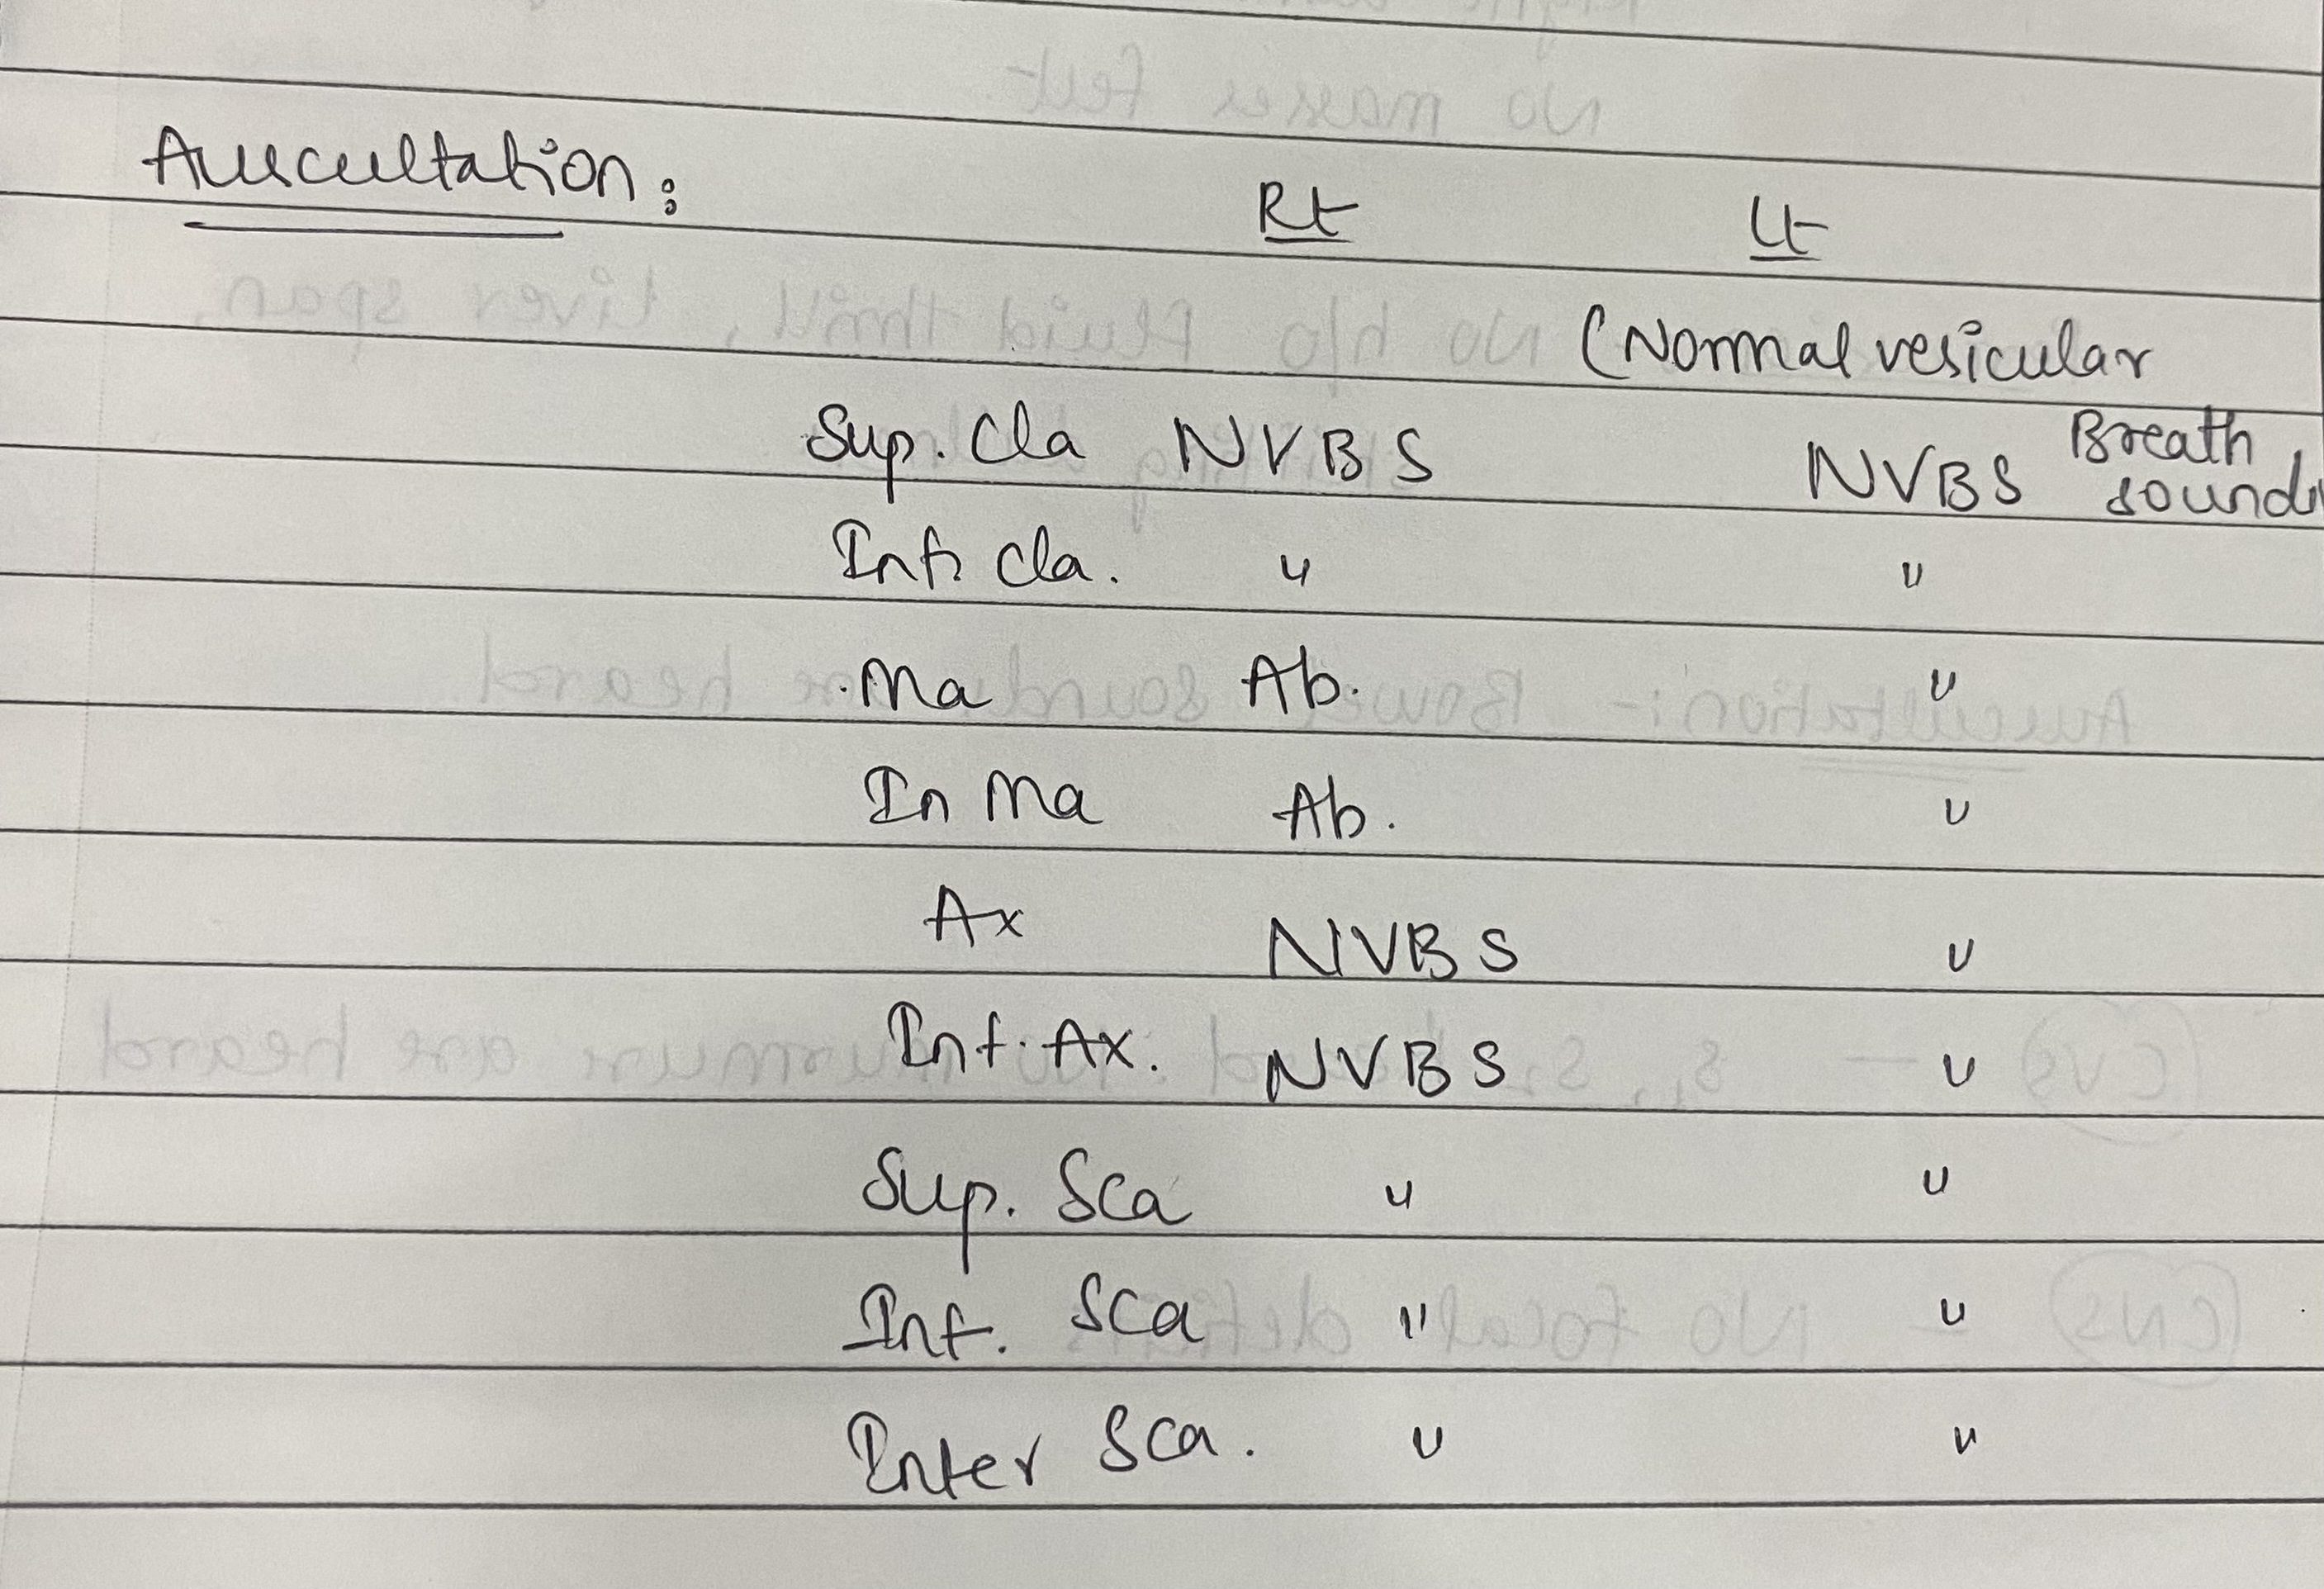 Auscultation:
Rt Lt
(Normal vesicular
Sup. Cla NVBS NVBS Breath sounds
Inf. Cla. " "
Ma Ab. "
In Ma Ab. "
Ax NVBS "
Inf. Ax. NVBS "
Sup. Sca " "
Inf. Sca " "
Inter Sca. " "